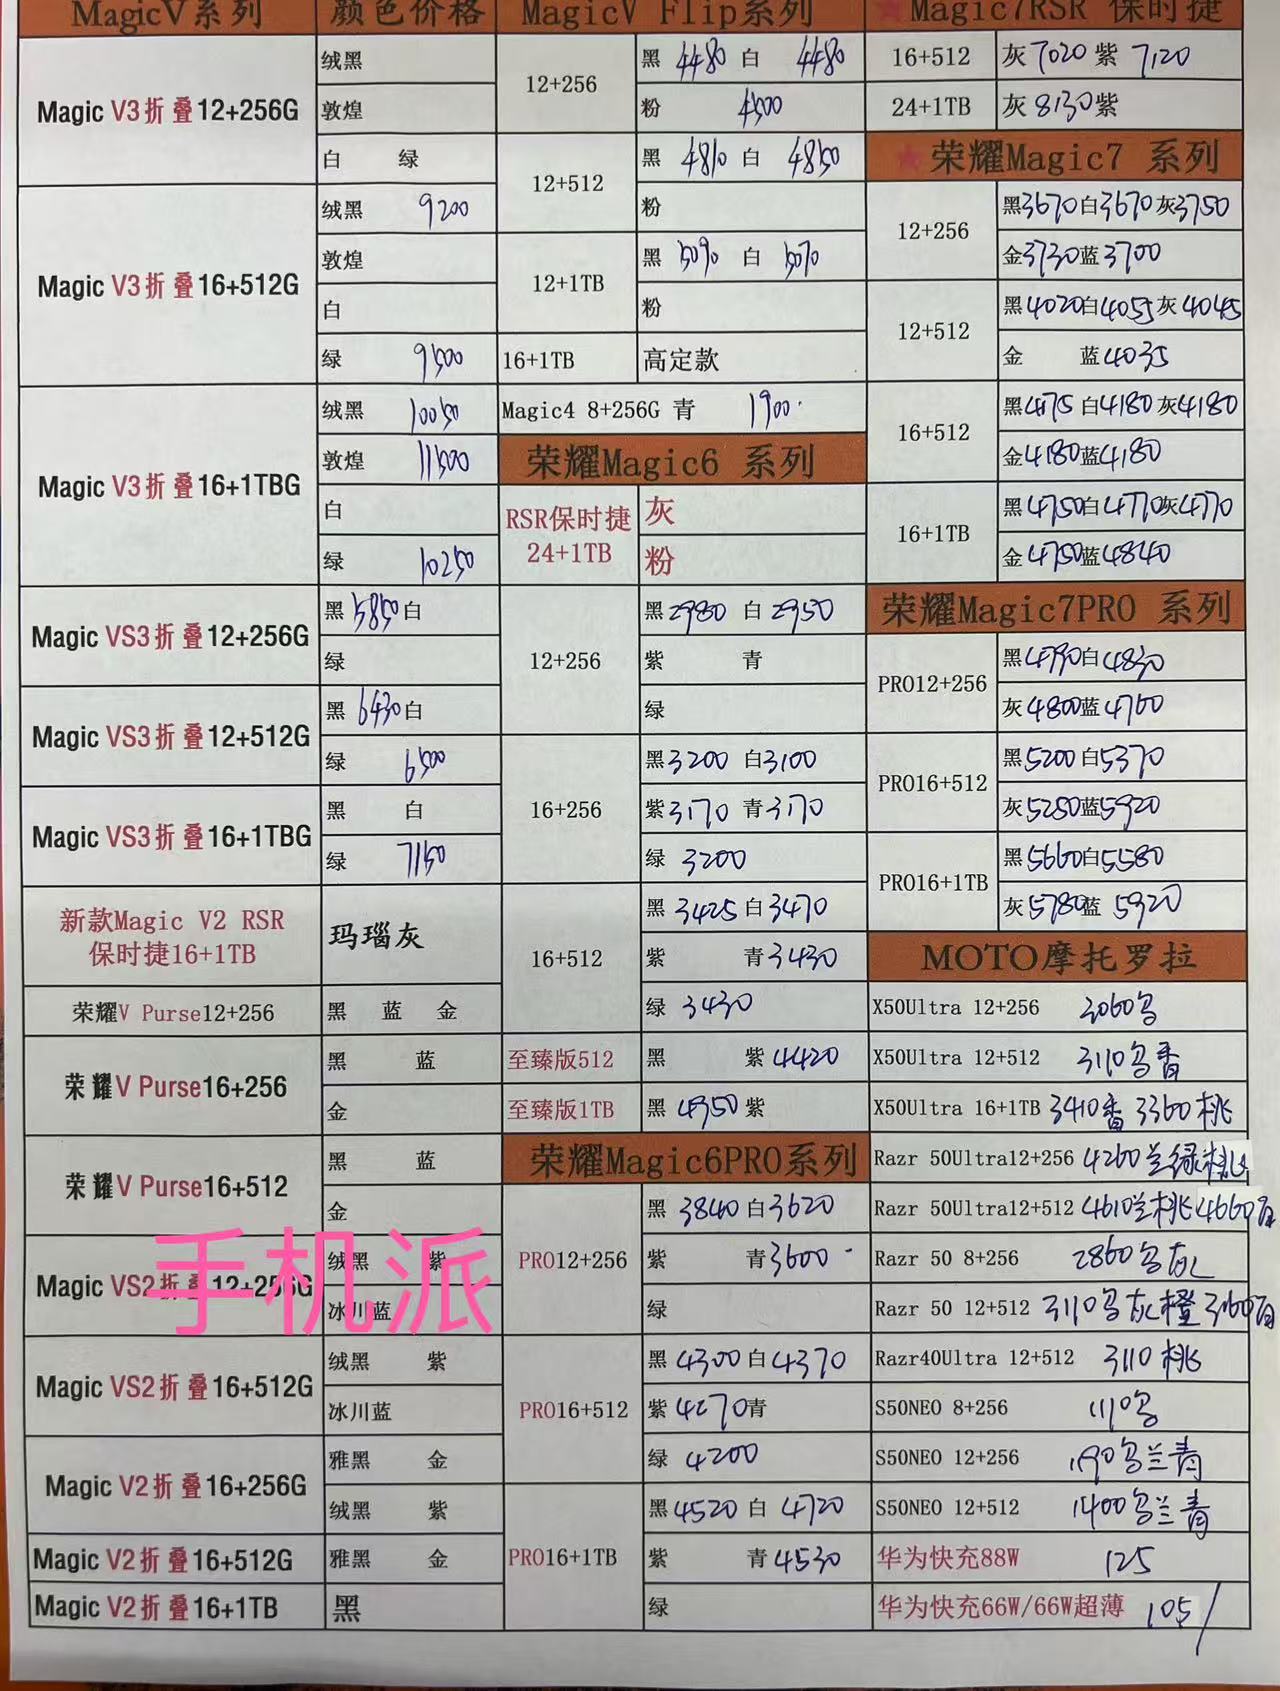 MagicV系列 颜色价格
Magic V3折叠12+256G
绒黑
敦煌
白 绿
Magic V3折叠16+512G
绒黑 9200
敦煌
白
绿 9500
Magic V3折叠16+1TBG
绒黑 10050
敦煌 11500
白
绿 10250
Magic VS3折叠12+256G
黑 5850 白
绿
Magic VS3折叠12+512G
黑 6430 白
绿 6500
Magic VS3折叠16+1TBG
黑 白
绿 7150
新款Magic V2 RSR
保时捷16+1TB
玛瑙灰
荣耀V Purse12+256
黑 蓝 金
荣耀V Purse16+256
黑 蓝
金
荣耀V Purse16+512
黑 蓝
金
Magic VS2折叠12+256G
绒黑 紫
冰川蓝
Magic VS2折叠16+512G
绒黑 紫
冰川蓝
Magic V2折叠16+256G
雅黑 金
绒黑 紫
Magic V2折叠16+512G
雅黑 金
Magic V2折叠16+1TB
黑
MagicV Flip系列
12+256
黑 4480 白 4480
粉 4500
12+512
黑 4810 白 4850
粉
12+1TB
黑 5090 白 5070
粉
16+1TB 高定款
Magic4 8+256G 青 1900
荣耀Magic6 系列
RSR保时捷
24+1TB
灰
粉
12+256
黑2980 白 2950
紫 青
绿
16+256
黑3200 白3100
紫3170 青3170
绿 3200
16+512
黑 3425 白3470
紫 青3430
绿 3430
至臻版512 黑 紫 4420
至臻版1TB 黑 4950 紫
荣耀Magic6PRO系列
PRO12+256
黑 3840 白3620
紫 青3600
绿
PRO16+512
黑 4300 白4370
紫 4270青
绿 4200
PRO16+1TB
黑4520 白 4720
紫 青4530
绿
★Magic7RSR 保时捷
16+512 灰 7020 紫 7120
24+1TB 灰 8130紫
★荣耀Magic7 系列
12+256
黑3670白3670灰3750
金3730蓝3700
12+512
黑4020白4055灰4045
金 蓝4035
16+512
黑4175 白4180灰4180
金4180蓝4180
16+1TB
黑4750白4770灰4770
金4750蓝4840
荣耀Magic7PRO 系列
PRO12+256
黑4790白4830
灰4800蓝4760
PRO16+512
黑5200白5370
灰5250蓝5920
PRO16+1TB
黑5660白5580
灰5780蓝 5920
MOTO摩托罗拉
X50Ultra 12+256 3060鸟
X50Ultra 12+512 3110鸟香
X50Ultra 16+1TB 3410香 3360桃
Razr 50Ultra12+256 4260兰绿桃
Razr 50Ultra12+512 4610兰桃4660
Razr 50 8+256 2860鸟灰
Razr 50 12+512 3110鸟灰橙 3160
Razr40Ultra 12+512 3110桃
S50NEO 8+256 1110鸟
S50NEO 12+256 1190鸟兰青
S50NEO 12+512 1400鸟兰青
华为快充88W 125
华为快充66W/66W超薄 105
手机派